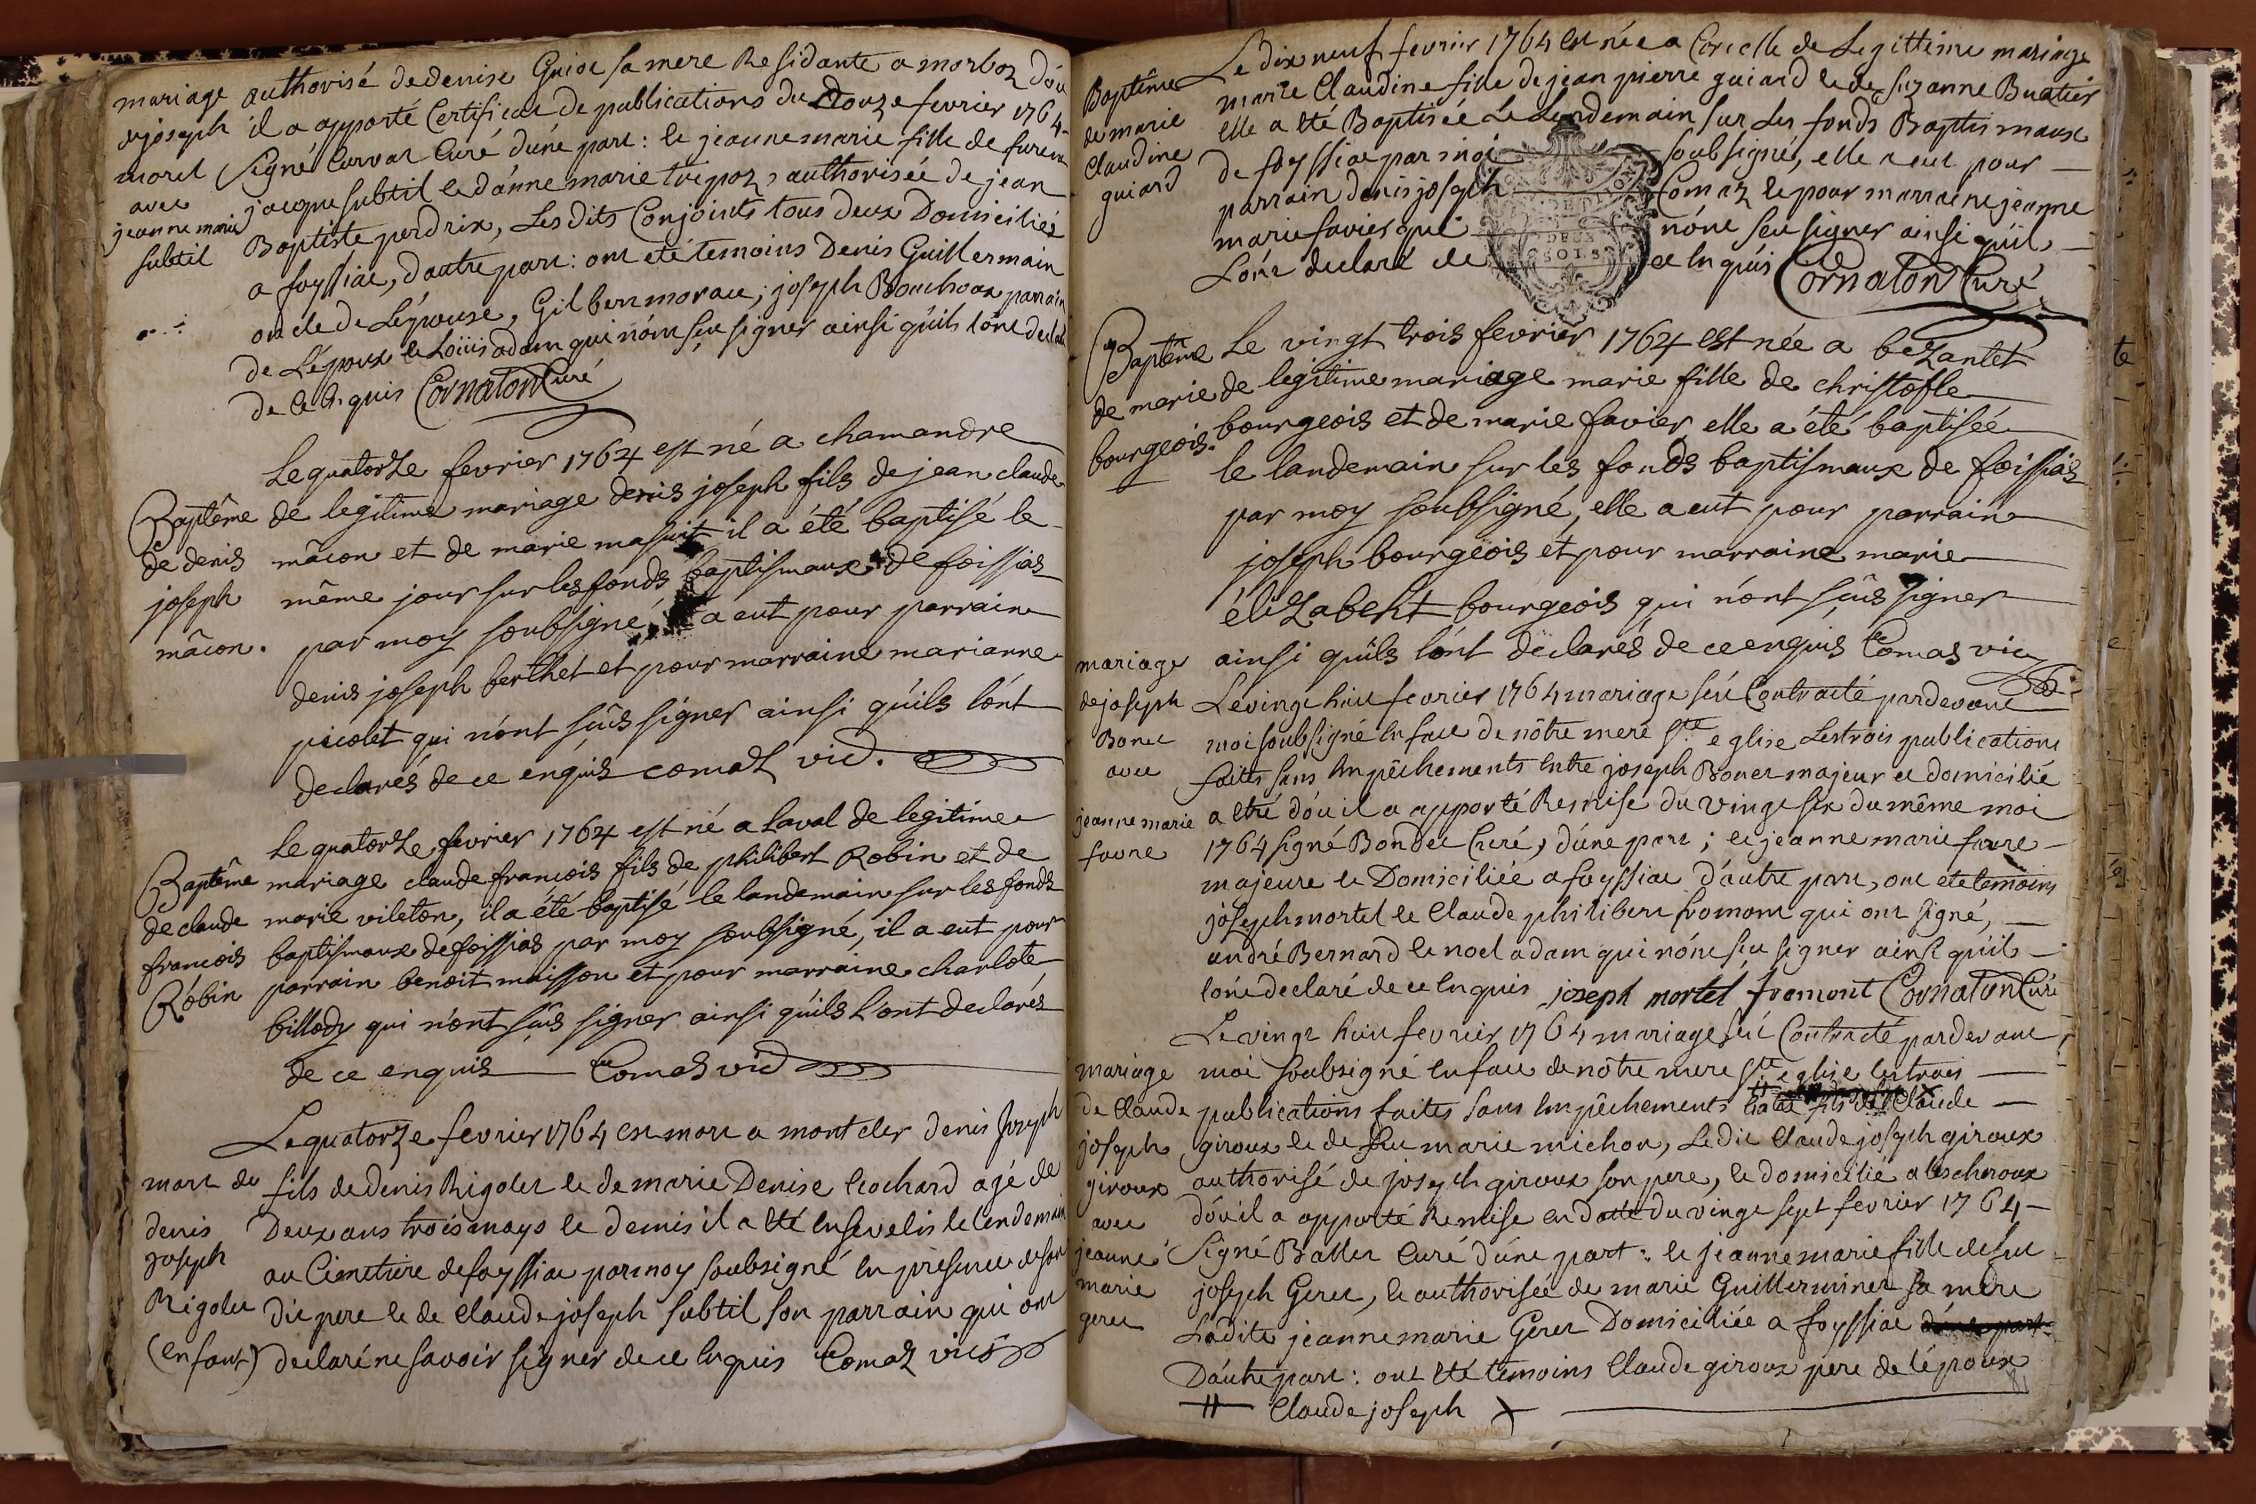 mariage
de joseph
morel
avec
jeanne marie
subtil
authorisé de denise Guiot sa mere Residante a marboz d'óu
il a apporté Certificat de publications du Douze fevrier 1764
signé Curvat Curé d'une part : et jeanne marie fille de furent
jacque subtil et d'anne marie tripoz, authorisée de jean
Baptiste perdrix, Lesdits Conjoints tous deux Domiciliés
a foyssiat, d'autre part : ont eté temoins Denis Guillermain
oncle de L'épouse, Gilbert morau, joseph Bouchoux parrain
de L'époux et Loüis adam qui n'ónt sçu signer ainsi qu'ils l'ónt declaré
de ce enquis Cornaton Curé
Baptême
de denis
joseph
mâcon.
Le quatorze fevrier 1764 est né a chamandre
de legitime mariage denis joseph fils de jean claude
mâcon et de marie masuit il a été baptisé le
même jour sur les fonds baptismaux de foissias
par moy soubsigné, il a eut pour parrain
denis joseph berthet et pour marraine marianne
picolet qui n'ónt sçûs signer ainsi qu'ils l'ónt
declarés de ce enquis comaz vic.
Baptême
de claude
francois
Robin
Le quatorze fevrier 1764 est né a laval de legitime
mariage claude francois fils de philibert Robin et de
marie vileton, il a été baptisé le landemain sur les fonds
baptismaux de foissias par moy soubsigné, il a eut pour
parrain benoit maisson et pour marraine charlote
billoudz qui n'ont sçûs signer ainsi qu'ils l'ont declarés
de ce enquis Comas vic
mort de
denis
joseph
Rigolet
(enfant)
Le quatorze fevrier 1764 est mort a montcler denis Joseph
fils de denis Rigolet et de marie Denise Cochard agé de
Deux ans trois mays et demis il a eté Ensevelis le lendemain
au Cimetiere de foyssiat par moy soubsigné En presence de son
dit pere et de Claude joseph subtil son parrain qui ont
declaré ne savoir signer de ce Enquis Comaz vic
Baptême
de marie
Claudine
guiard
Le dix neuf fevrier 1764 est née a Corcelle de Legittime mariage
marie Claudine fille de jean pierre guiard et de suzanne Buatier
elle a eté Baptisée Le Lendemain sur Les fonds Baptismaux
de foyssiat par moi soubsigné, elle a eut pour
parrain denis joseph Comaz et pour marraine jeanne
marie favier qui n'ónt sçu signer ainsi qu'il
L'ónt declaré de ce Enquis Cornaton Curé
DEUX
SOLS
Baptême
de marie
bourgeois.
Le vingt trois fevrier 1764 est née a bezantet
de legitime mariage marie fille de christofle
bourgeois et de marie favier, elle a été baptisée
le landemain sur les fonds baptismaux de foissias
par moy soubsigné, elle a eut pour parrain
joseph bourgeois et pour marraine marie
élizabeht bourgeois qui n'ónt sçûs signer
ainsi qu'ils l'ónt déclarés de ce enquis Comas vic
mariage
de joseph
Bonet
avec
jeanne marie
favre
Le vingt huit fevrier 1764 mariage fut Contracté pardevant
moi soubsigné En face de nôtre mere Ste eglise Les trois publications
faites sans Empêchements Entre joseph Bonet majeur et domicilié
a etré d'óu il a apporté Remise du vingt six du même moi
1764 signé Bondet Curé, d'une part ; et jeanne marie favre
majeure et Domiciliée a foyssiat d'autre part, ont eté temoins
joseph mortel et Claude philibert fromont qui ont signé,
andré Bernard et noel adam qui n'ónt sçu signer ainsi qu'il
l'ónt declaré de ce Enquis joseph mortel fromont Cornaton Curé
mariage
de Claude
joseph
giroux
avec
jeanne
marie
geret
Le vingt huit fevrier 1764 mariage fut Contracté pardevant
moi soubsigné En face de nôtre mere Ste eglise les trois
publications faites sans Empêchements Entre fils de Claude
giroux et de feu marie michon, Le dit Claude joseph giroux
authorisé de joseph giroux son pere, et domicilié a lescheroux
d'óu il a apporté Remise en datte du vingt sept fevrier 1764
signé Ballet Curé d'une part : et jeanne marie fille de feu
joseph Geret, et authorisée de marie Guillerminet sa mere
Ladite jeanne marie Geret Domiciliée a foyssiat d'une part
D'autre part : ont eté temoins Claude giroux pere de l'époux
# Claude joseph